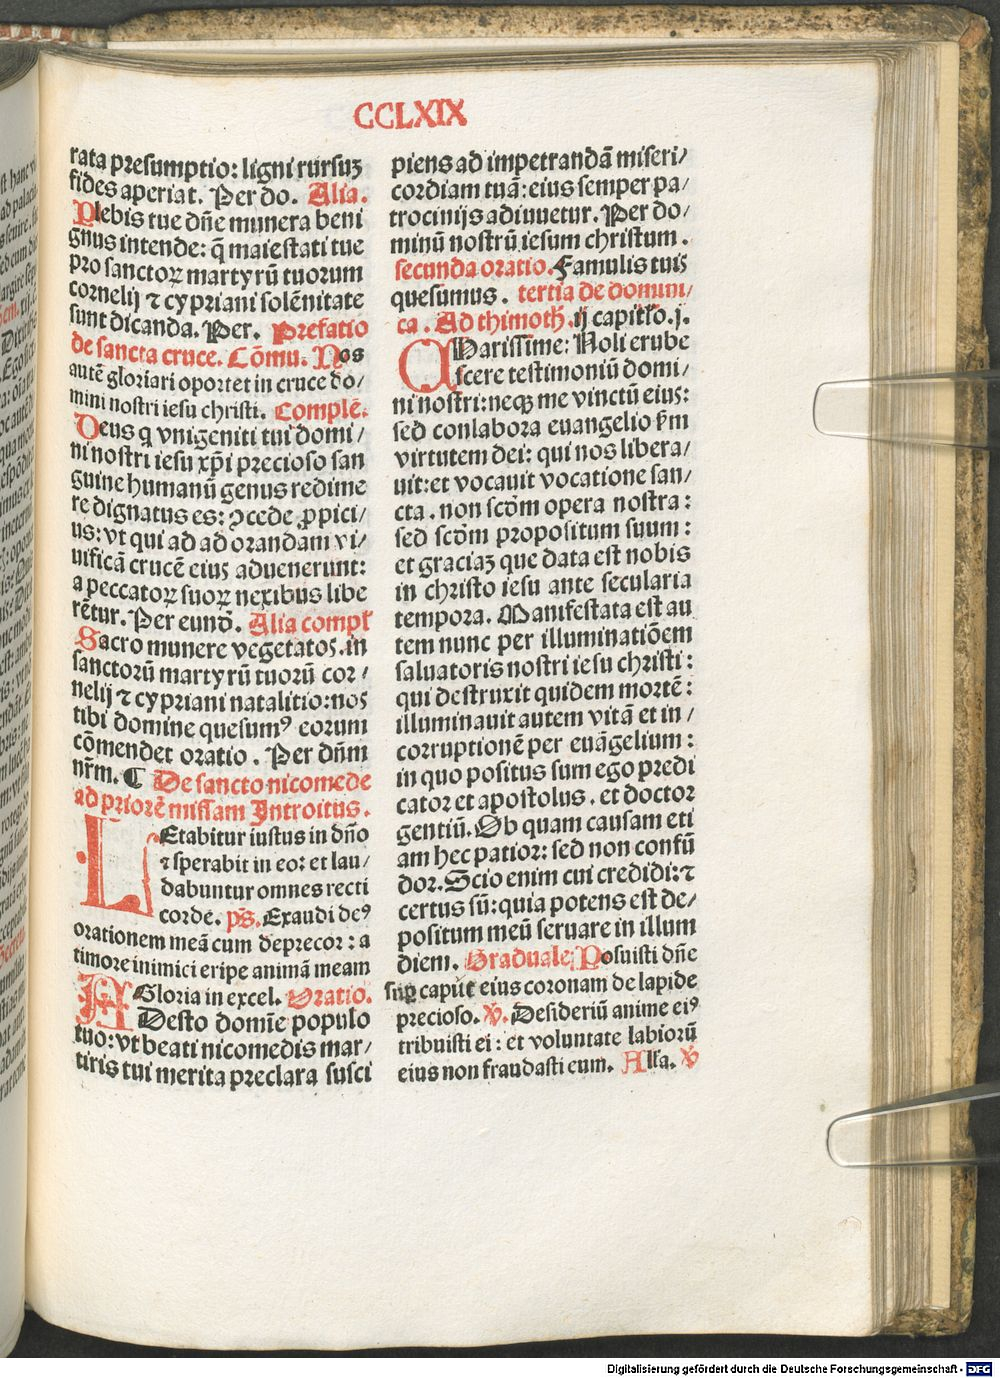 CCLXIX
rata presumptio: ligni rursuʒ
fides aperiat. Per do. Alia.
Plebis tue dn̄e munera beni
gnus intende: q̄ maiestati tue
pro sanctoꝝ martyrū tuorum
cornelij ⁊ cypriani solēnitate
sunt dicanda. Per. Prefatio
de sancta cruce. Cōmu. Nos
autē gloriari oportet in cruce do/
mini nostri iesu christi. Complē.
Deus q vnigeniti tui domi/
ni nostri iesu xp̄i precioso san
guine humanū genus redime
re dignatus es: ꝯcede ꝓpici/
us: vt qui ad ad orandam vi/
uificā crucē eius aduenerunt:
a peccatoꝝ suoꝝ nexibus libe
rētur. Per eund̄. Alia compl̄
Sacro munere vegetatos. in
sanctorū martyrū tuorū cor/
nelij ⁊ cypriani natalitio: nos
tibi domine quesumꝰ eorum
cōmendet oratio. Per dn̄m
nr̄m. ¶ De sancto nicomede
ad priorē missam Introitus.
LEtabitur iustus in dn̄o
⁊ sperabit in eo: et lau/
dabuntur omnes recti
corde. ps̄. Exaudi deꝰ
orationem meā cum deprecor: a
timore inimici eripe animā meam
Gloria in excel. Oratio.
ADesto domīe populo
tuo: vt beati nicomedis mar/
tiris tui merita preclara susci
piens ad impetrandā miseri/
cordiam tuā: eius semper pa/
trocinijs adiuuetur. Per do/
minū nostrū iesum christum.
secunda oratio. Famulis tuis
quesumus. tertia de domini/
ca. Ad thimoth̄. ij capitl̄o. j.
CHarissime: Noli erube
scere testimoniū domi/
ni nostri: neqꝫ me vinctū eius:
sed conlabora euangelio ẜm
virtutem dei: qui nos libera/
uit: et vocauit vocatione san/
cta. non scd̄m opera nostra:
sed scd̄m propositum suum:
et graciaʒ que data est nobis
in christo iesu ante secularia
tempora. Manifestata est au
tem nunc per illuminatiōem
saluatoris nostri iesu christi:
qui destruxit quidem mortē:
illuminauit autem vitā et in/
corruptionē per euāgelium:
in quo positus sum ego predi
cator et apostolus. et doctor
gentiū. Ob quam causam eti
am hec patior: sed non confū
dor. Scio enim cui credidi: ⁊
certus sū: quia potens est de/
positum meū seruare in illum
diem. Graduale. Posuisti dn̄e
suꝑ caput eius coronam de lapide
precioso. ℣. Desideriū anime eiꝰ
tribuisti ei: et voluntate labiorū
eius non fraudasti eum. All̄a. ℣
Digitalisierung gefördert durch die Deutsche Forschungsgemeinschaft - DFG